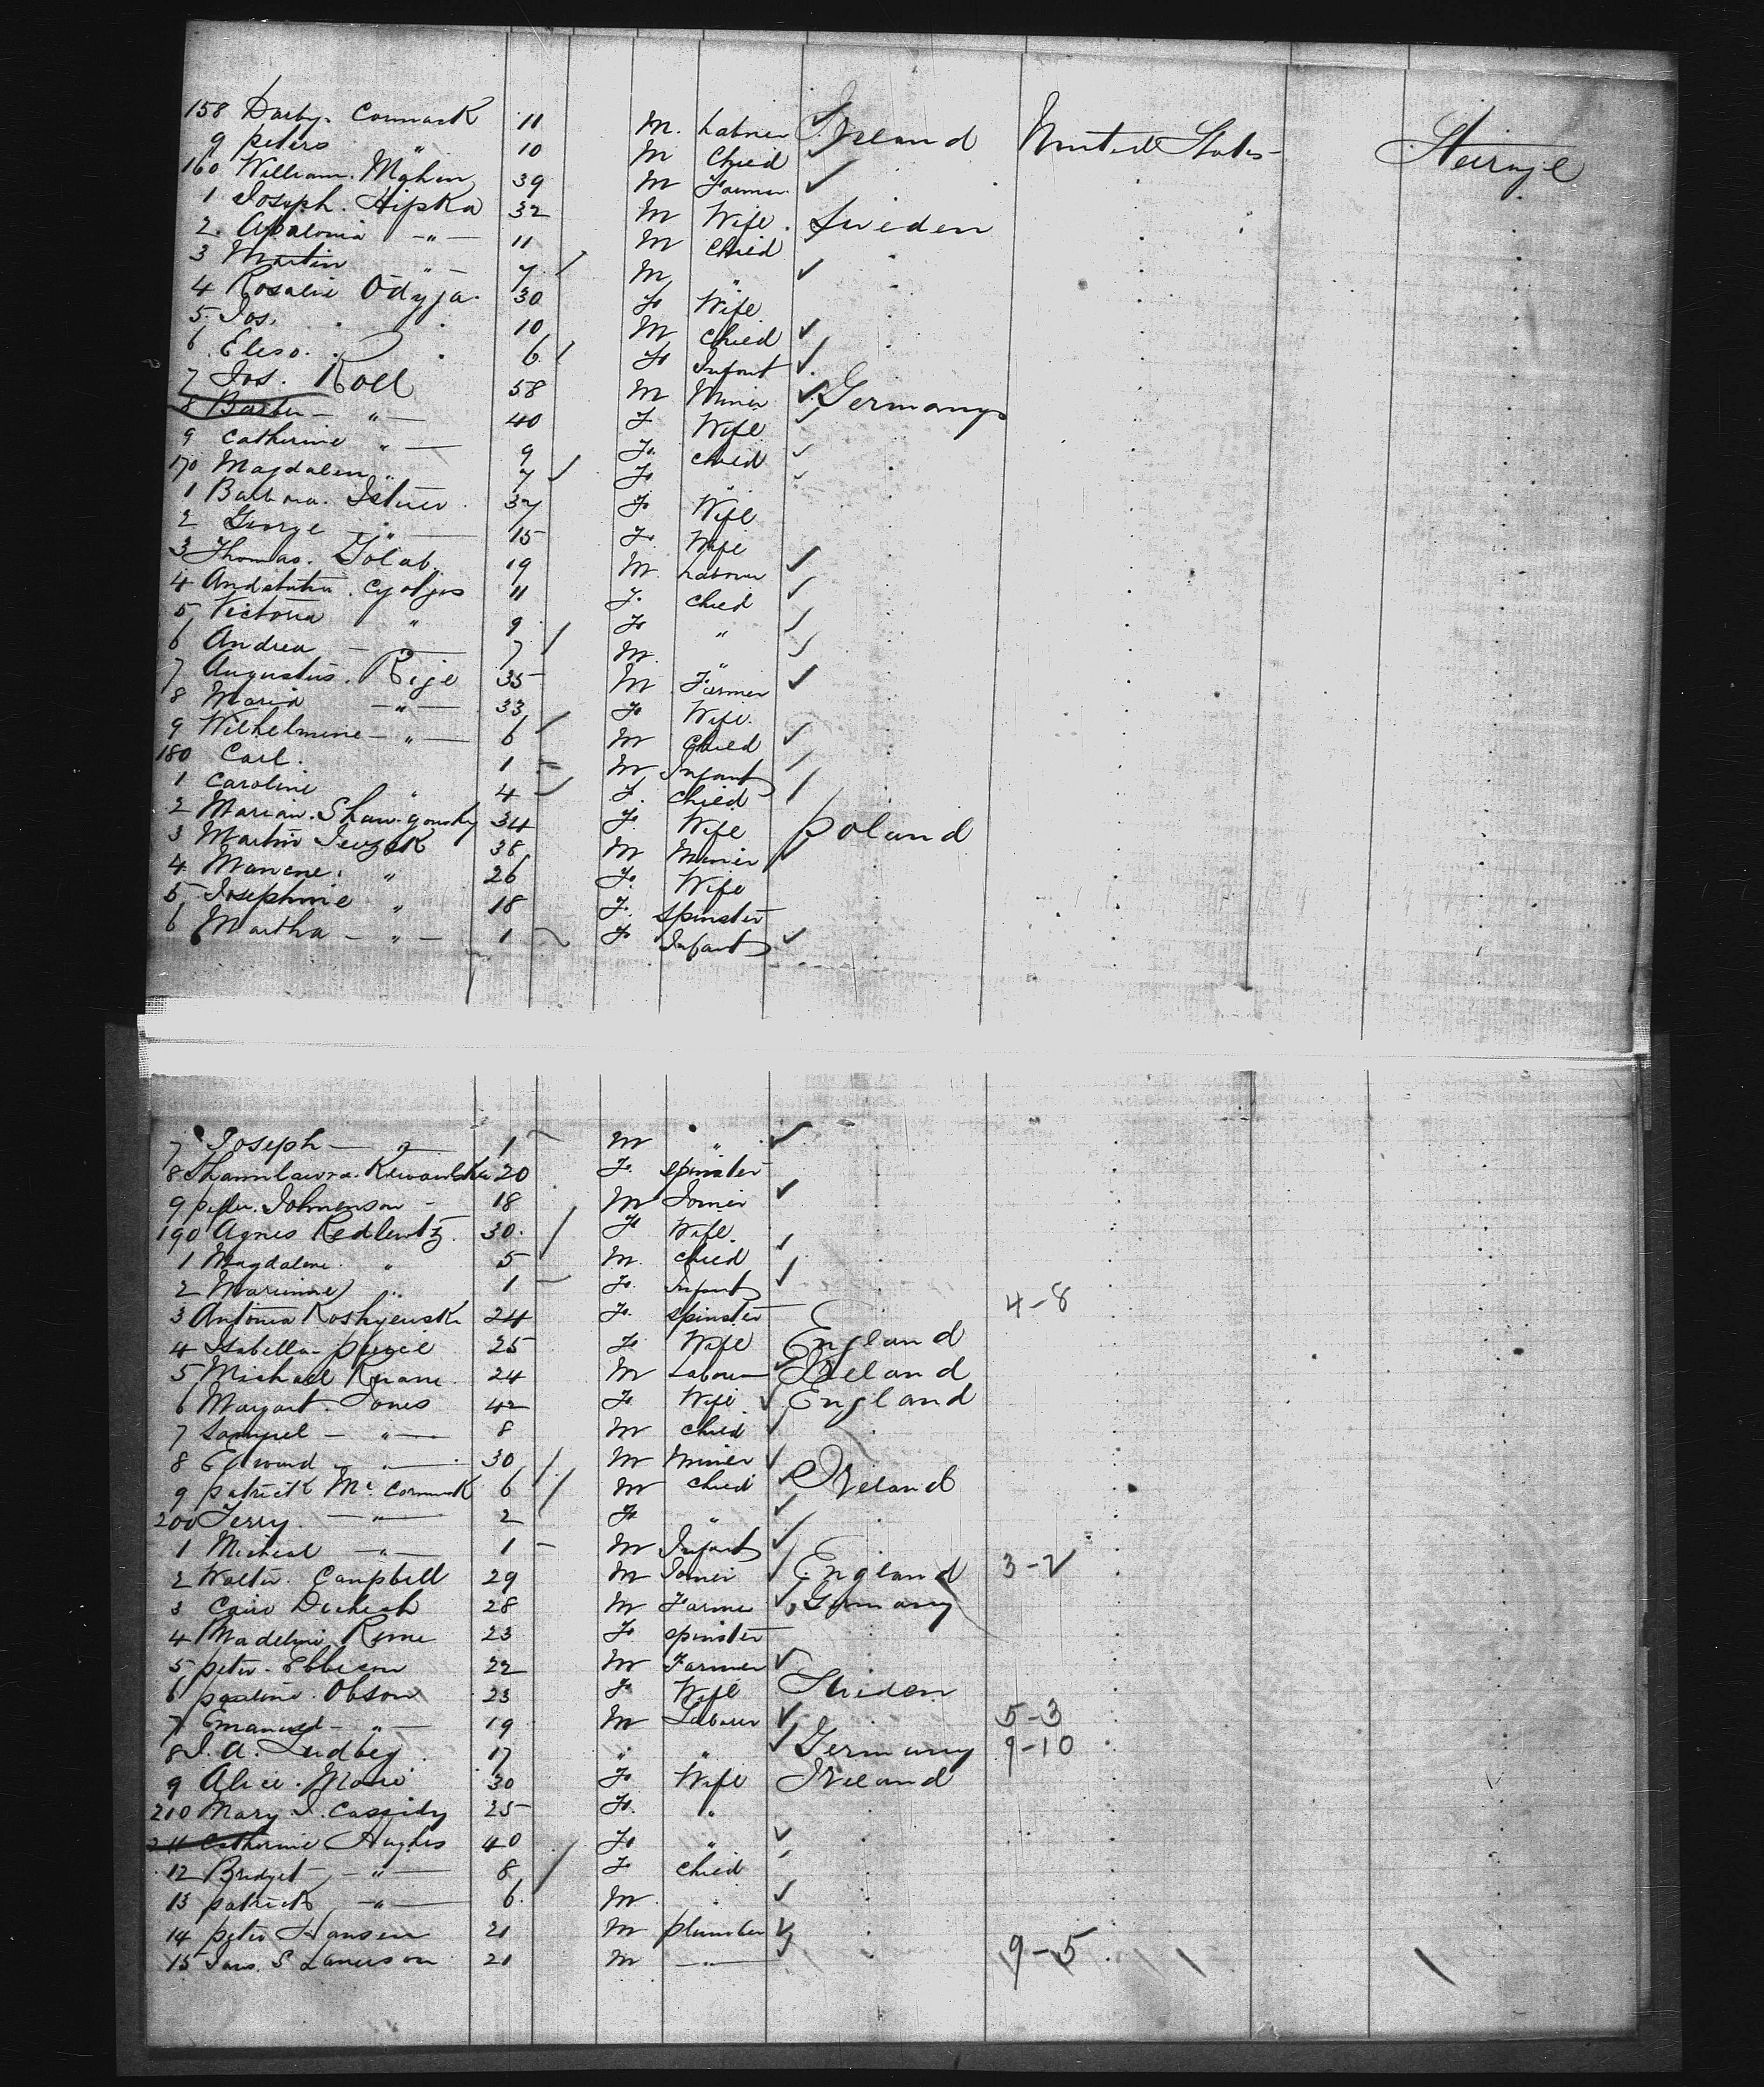 158 Darby. Cormack 11 M. Labrer Ireland United States Steirage
9 peters " 10 M Chied
160 William. Mahin 39 M Farmer
1 Joseph. Hipka 32 M Wife. Sweden
2. Apalonia -"- 11 M Chied
3 Martin " - 7 M "
4 Rosalie Odyja. 30 F Wife
5 Jos. 10 M Chied
6 Eleso. 6 F Infant
7 Jos. Roll 58 M Miner Germany
8 Barber - " - 40 F Wife
9 Catherine " - 9 F. Chied
170 Magdalen " 7 F "
1 Barbara. 37 F Wife
2 George " 15 F. Wife
3 Thomas. Golab. 19 M. Labrer
4 11 F. Chied
5 Victoria " 9 F "
6 Andrea - " 7 M. "
7 Augustus. Rije 35 M Farmer
8 Maria -"- 33 F Wife.
9 Wilhelmine - " - 6 M Chied
180 Carl. 1 - M Infant
1 Caroline " 4 F. Chied
2 Marian. 34 F. Wife Poland
3 Martin 38 M Miner
4 " 26 F. Wife
5 Josephine " 18 F. Spinster
6 Martha - " - 1 F Infant
7 Joseph - " 1 M "
8 20 F. Spinster
9 peter. Johnenson - 18 M Joiner
190 Agnes Redlewtz. 30. F Wife.
1 Magdalene. " 5 M. Chied
2 " 1 - F. Infant
3 Antonia 24 F. Spinster 4-8
4 Isabella 25 F Wife England
5 Michael 24 M Labourer Ireland
6 Margart. Jones 42 F Wife England
7 Sampel - " - 8 M Chied
8 Edward - " - 30 M Miner
9 patrick Mc. Cormack 6 M Chied Ireland
200 Terry. -"- 2 F "
1 Micheal -"- 1 - M Infant
2 Walter. Campbell 29 M Joiner England 3-2
3 28 M Farmer Germany
4 23 F Spinster
5 peter. Ebbeson 22 M Farmer
6 pauline. Olson 23 F Wife Sweden
7 Emanuel - " - 19 M Labourer 5-3
8 J. A. Ludbeg. 17 " " Germany 9-10
9 Alice. 30 F Wife Ireland
210 Mary J. Cassidy 25 F. "
211 Catherine Hughes 40 F "
12 Bridget - " - 8 F Chied
13 patrick -"- 6. M
14 peter Hansen 21 M plumber
15 Jas. S 21 M -"- 9-5